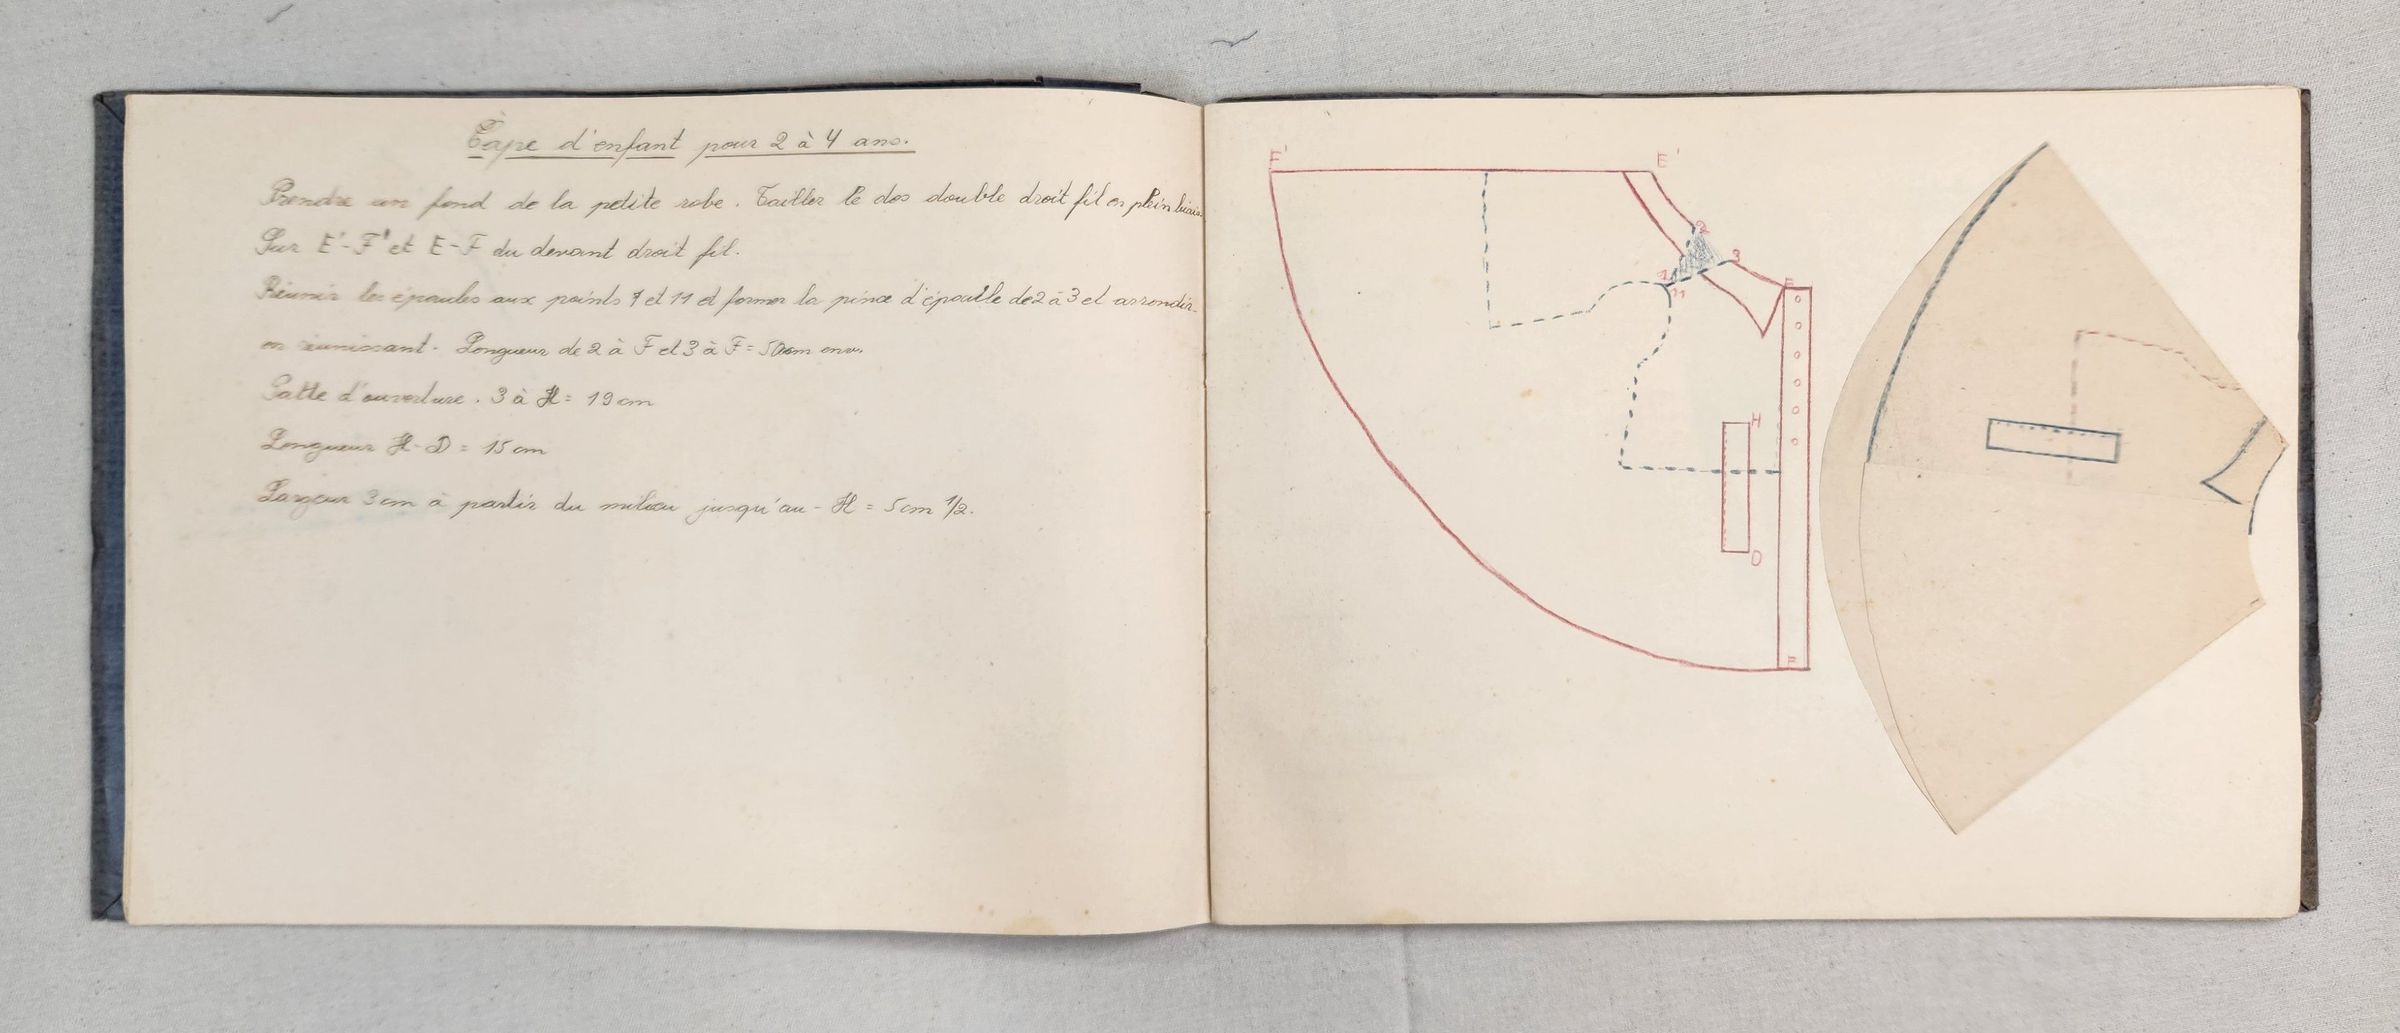 Cape d'enfant pour 2 à 4 ans.
Prendre un fond de la petite robe. Tailler le dos double droit fil en plein biais
Sur E'-F' et E-F du devant droit fil.
Réunir les épaules aux points 7 et 11 et former la pince d'épaule de 2 à 3 et arrondir
en réunissant. Longueur de 2 à F et 3 à F = 50cm env.
Patte d'ouverture. 3 à H = 19cm
Longueur H-D = 15cm
Largeur 3cm à partir du milieu jusqu'au - H = 5cm 1/2.
F'
E'
2
3
7
11
E
H
D
F